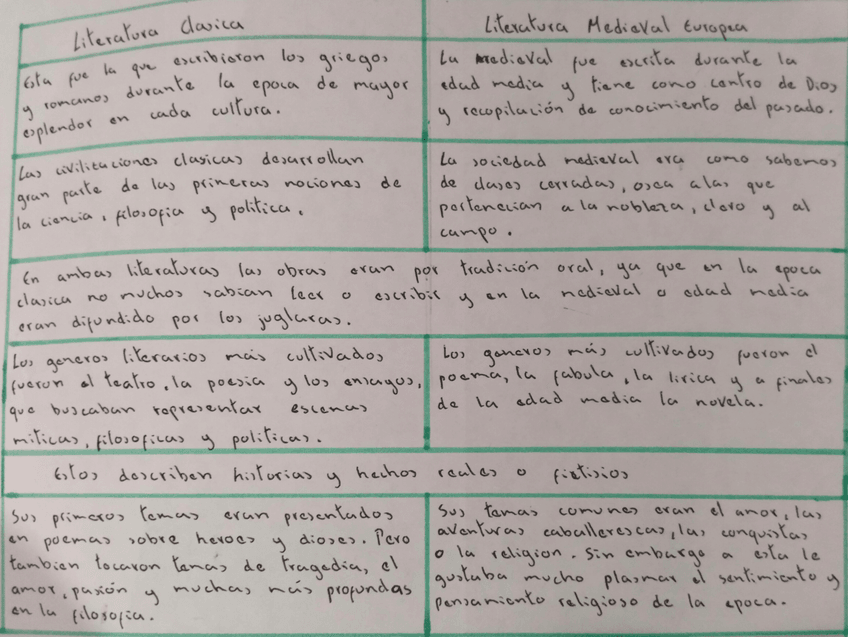 Literatura Clasica
Literatura Medieval Europea
Esta fue la que escribieron los griegos
y romanos durante la epoca de mayor
esplendor en cada cultura.
La medieval fue escrita durante la
edad media y tiene como centro de Dios
y recopilación de conocimiento del pasado.
Las civilizaciones clasicas desarrollan
gran parte de las primeras nociones de
la ciencia, filosofia y politica.
La sociedad medieval era como sabemos
de clases cerradas, osea a las que
pertenecian a la nobleza, clero y al
campo.
En ambas literaturas las obras eran por tradición oral, ya que en la epoca
clasica no muchos sabian leer o escribir y en la medieval o edad media
eran difundido por los juglaras.
Los generos literarios más cultivados
fueron el teatro, la poesia y los ensayos,
que buscaban representar escenas
miticas, filosoficas y politicas.
Los generos más cultivados fueron el
poema, la fabula, la lirica y a finales
de la edad media la novela.
Estos describen historias y hechos reales o fictisios
Sus primeros temas eran presentados
en poemas sobre heroes y dioses. Pero
tambien tocaron temas de tragedia, el
amor, pasión y muchas más profundas
en la filosofia.
Sus temas comunes eran el amor, las
aventuras caballerescas, las conquistas
o la religion. Sin embargo a esta le
gustaba mucho plasmar el sentimiento y
pensamiento religioso de la epoca.